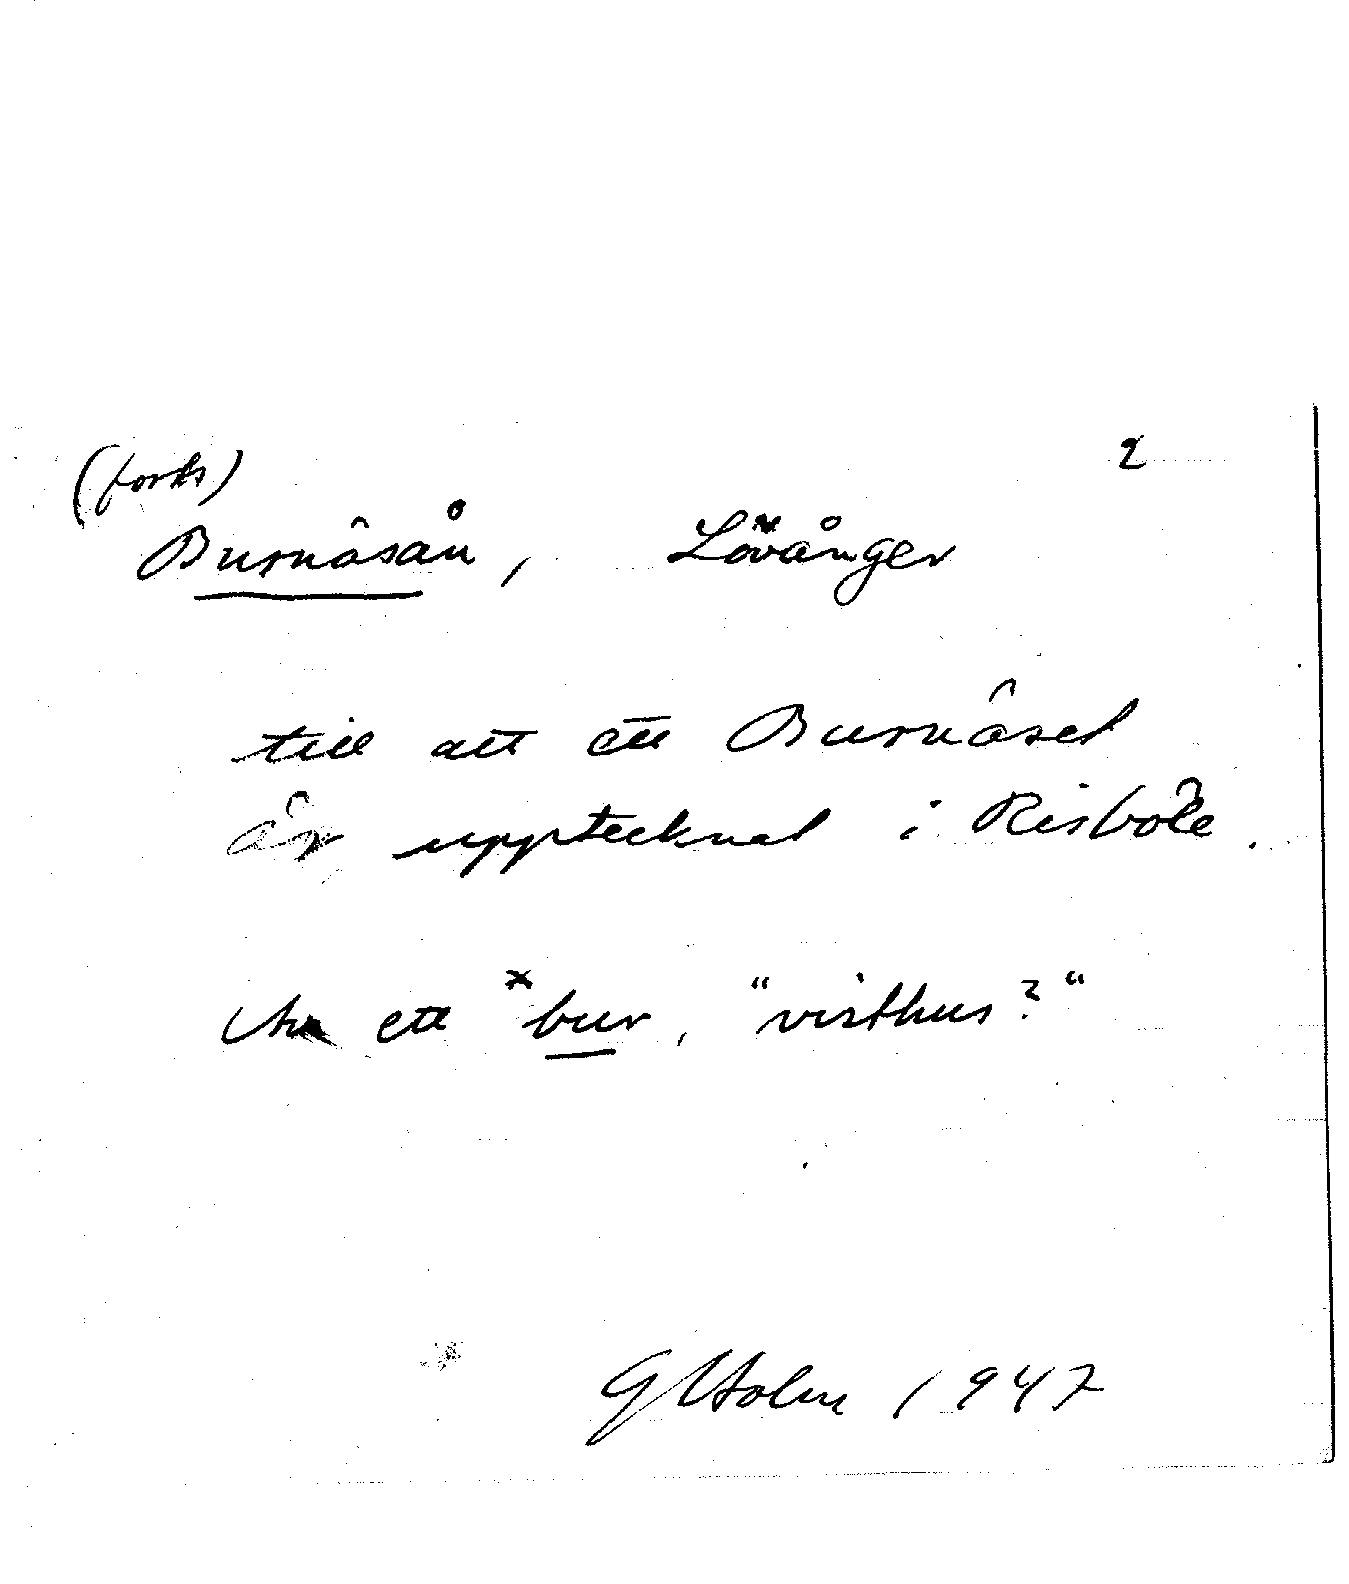 (forts)
2
Burnäsån, Lövånger
till att ett Burnäset
är upptecknat i Risböle.
Av ett *bur, "visthus?"
G Holm 1947